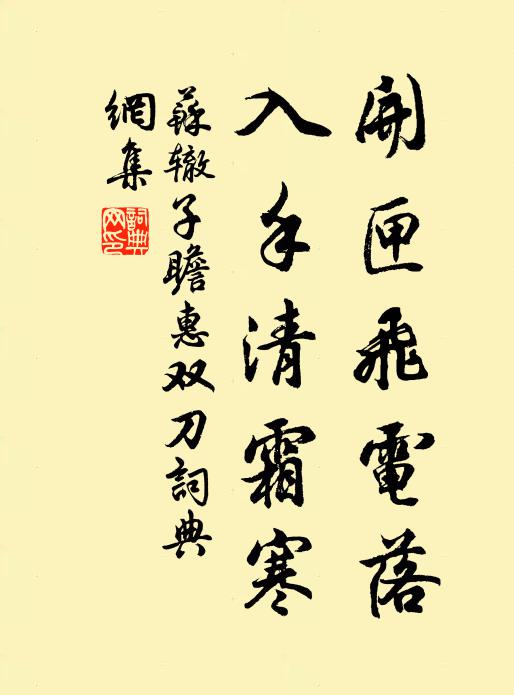 開匣飛電落
入手清霜寒
蘇辙子瞻惠双刀詞典
網集
詞典網印